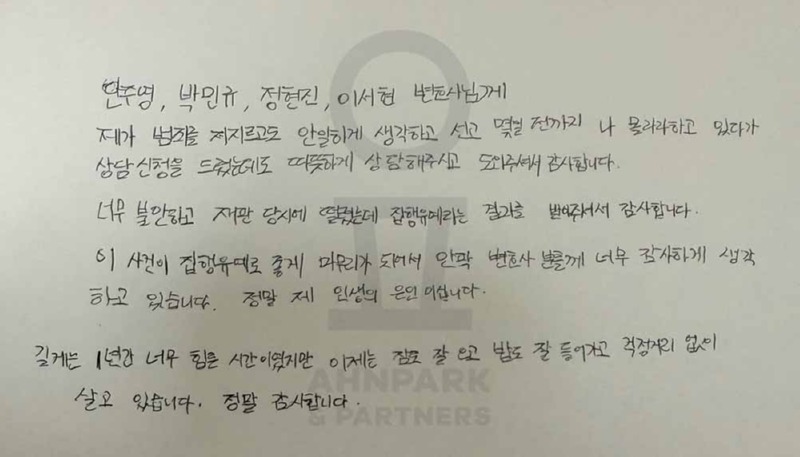 안주영, 박민규, 정현진, 이서현 변호사님께
제가 범죄를 저지르고도 안일하게 생각하고 선고 몇일 전까지 나 몰라라하고 있다가
상담신청을 드렸는데도 따뜻하게 상담해주시고 도와주셔서 감사합니다.
너무 불안하고 재판 당시에 떨렸는데 집행유예라는 결과를 받아주셔서 감사합니다.
이 사건이 집행유예로 좋게 마무리가 되어서 안팍 변호사 분들께 너무 감사하게 생각
하고 있습니다. 정말 제 인생의 은인 이십니다.
길게는 1년간 너무 힘든 시간이였지만 이제는 잠도 잘 오고 밥도 잘 들어가고 걱정거리 없이
살고 있습니다. 정말 감사합니다.
AHNPARK
& PARTNERS